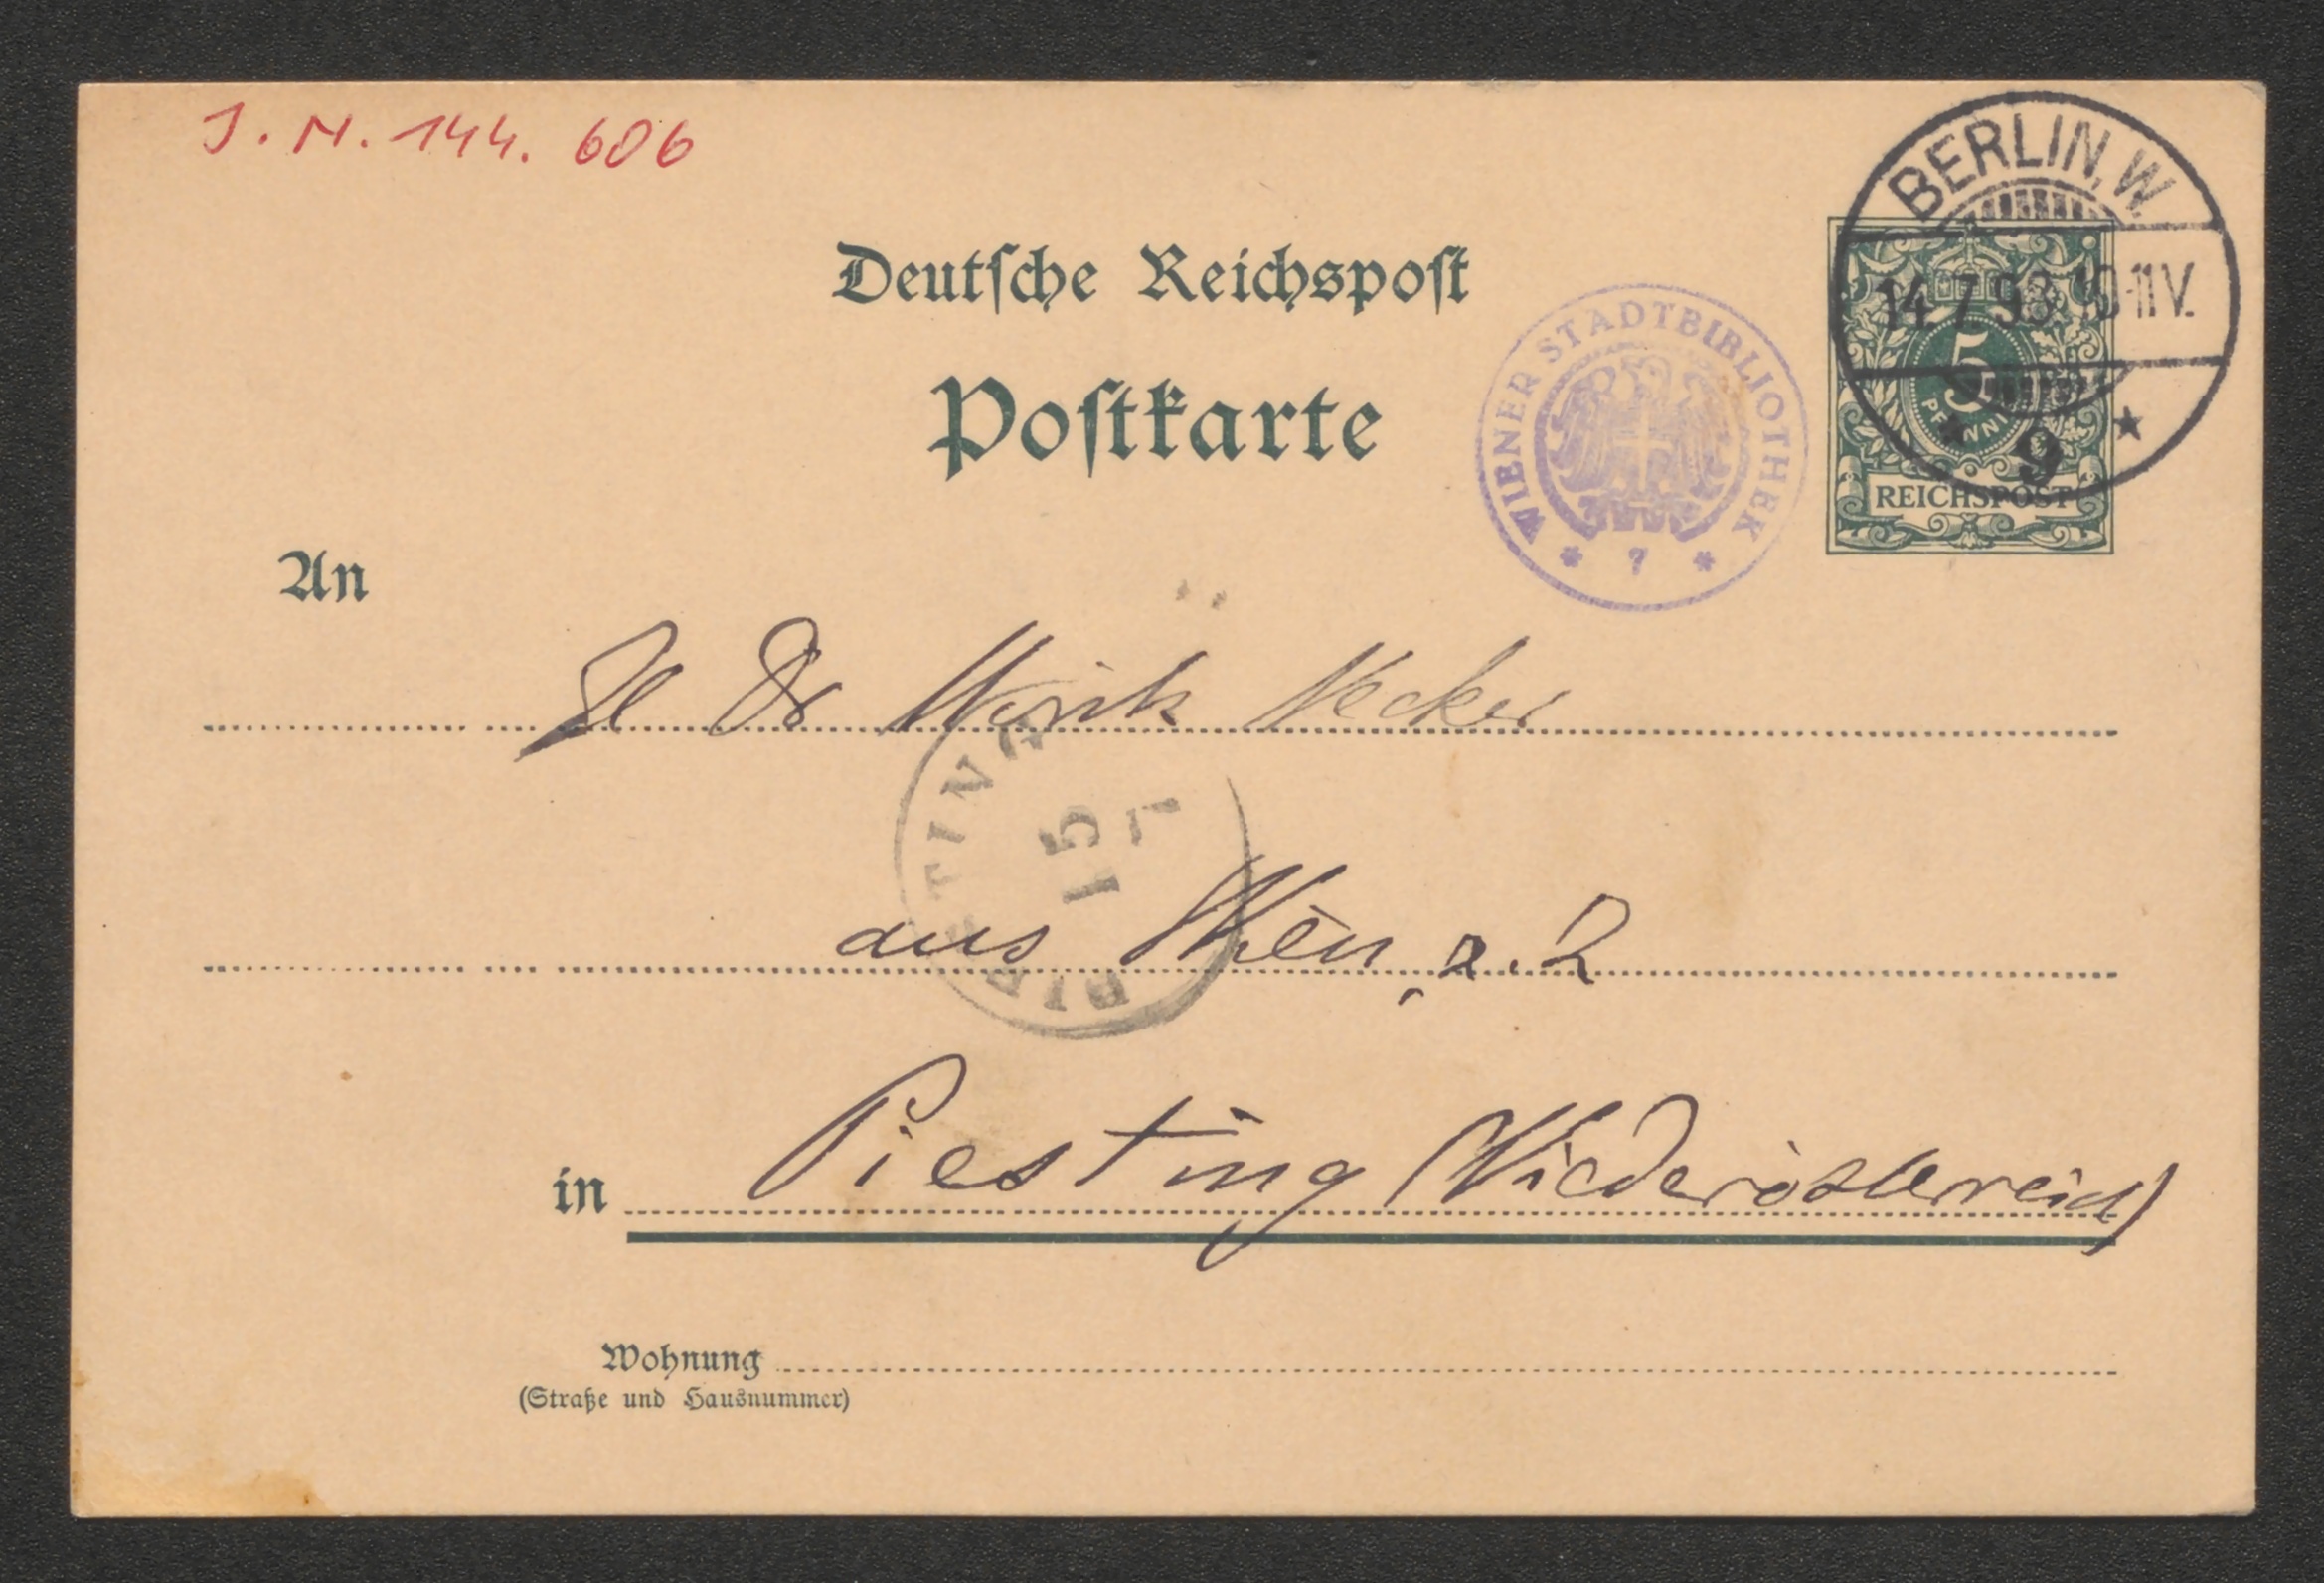 J. N. 144. 606
BERLIN, W.
14.7.93. 10-11V.
9
Deutsche Reichspost
Postkarte
WIENER STADTBIBLIOTHEK
7
5
PFENNIG
REICHSPOST
An
H Dr Moritz Necker
15
7
aus Wien, z. Z
in Piesting (Niederösterreich)
Wohnung
(Straße und Hausnummer)